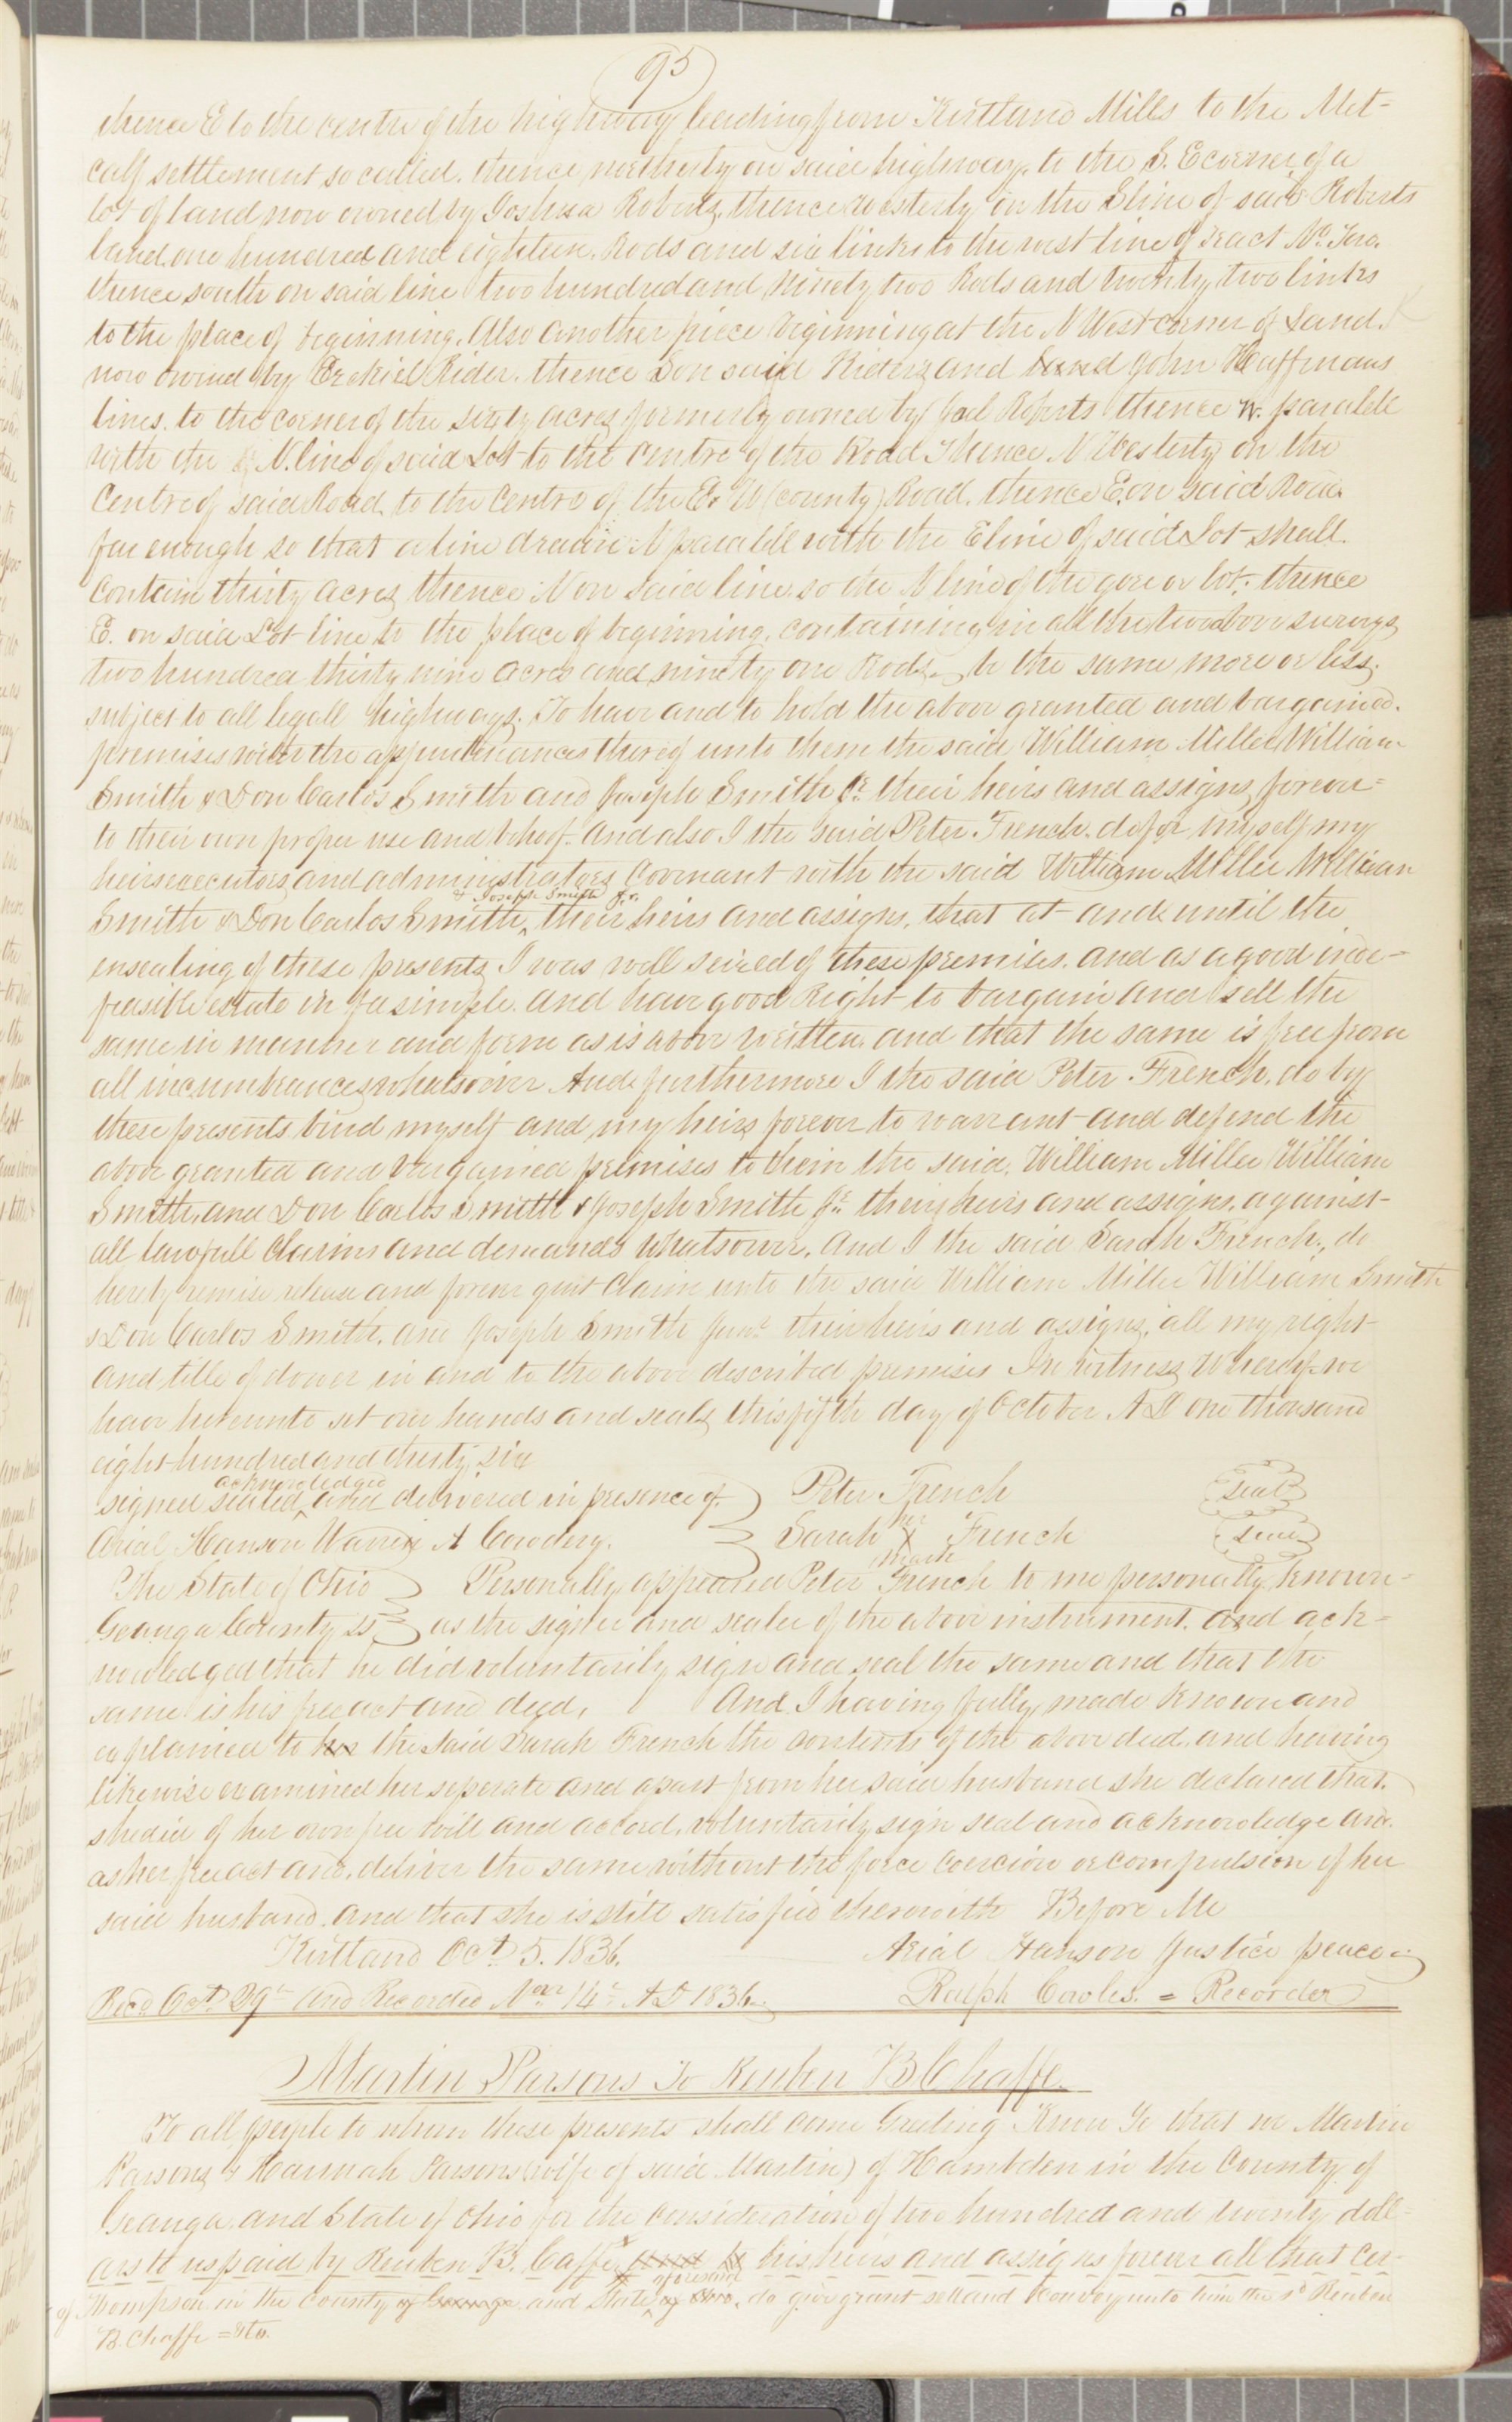 95
thence E to the centre of the highway leading from Kirtland Mills to the Met-
calf settlement so called. thence northerly on said highway, to the S. E corner of a
lot of land now owned by Joshua Roberts, thence westerly on the S line of said Roberts
land one hundred and eighteen Rods and six links to the west line of tract No. Two.
thence south on said line two hundred and ninety two Rods and twenty two links
to the place of beginning. Also another piece beginning at the N West corner of Land.
now owned by Ezekiel Rider. thence S on said Riders and land John Hauffmans
lines. to the corner of the sixty acres formerly owned by Joel Roberts thence W. paralell
with the N. line of said Lot to the Centre of the Road Thence N Westerly on the
Centre of said Road to the Centre of the E & W (county) Road. thence E. on said Road
far enough so that a line drawn N paralell with the E line of said Lot shall.
contain thirty acres, thence N on said line, to the N line of the gore or lot. thence
E. on said Lot line to the place of beginning. containing in all the two above surveys
two hundred thirty nine acres and ninety one Rods, be the same more or less,
subject to all legall highways. To have and to hold the above granted and bargained.
premises with the appurtenances thereof unto them the said William Miller William
Smith & Don Carlos Smith and Joseph Smith Jr. their heirs and assigns forever=
to their own proper use and behoof. And also I the said Peter French. do for myself my
heirs executors, and administrators Covenant with the said William Miller William
& Joseph Smith Jr.
Smith & Don Carlos Smith, their heirs and assigns, that at and until the
ensealing of these presents, I was well seized of these premises. and as a good inde-
feasible estate in fee simple. and have good Right to bargain and sell the
same in manner and form as is above written, and that the same is free from
all incumbrances whatsoever And furthermore I the said Peter French, do by
these presents bind myself and my heirs forever to warrant and defend the
above granted and bargained premises to them the said, William Miller William
Smith, and Don Carlos Smith & Joseph Smith Jr. their heirs and assigns, against
all lawfull Claims and demands whatsoever, And I the said Sarah French., do
hereby remise release and forever quit Claim unto the said William Miller William Smith
& Don Carlos Smith, and Joseph Smith Junr. their heirs and assigns, all my right
and title of dower in and to the above described premises In witness Whereof we
have hereunto set our hands and seals this fifth day of October A D one thousand
eight hundred and thirty six
acknowledged
signed sealed, and delivered in presence of. Peter French seal
Arial Hanson Warren A Cowdery. Sarah her X mark French seal
The State of Ohio Personally appeared Peter French to me personally known-
Geauga County ss as the signer and sealer of the above instrument. and ack-
nowledged that he did voluntarily sign and seal the same and that the
same is his free act and deed, And I having fully made known and
explained to her the said Sarah French the contents of the above deed, and having
likewise examined her seperate and apart from her said husband she declared that.
she did of her own free will and accord, voluntarily sign seal and acknowledge and.
as her free act and. deliver the same without the force coercion or compulsion of her
said husband. and that she is still satisfied therewith Before Me
Kirtland Oct. 5. 1836. Arial Hanson Justice peace
Recd. Oct 29th and Recorded Nov. 14th A D 1836 Ralph Cowles. = Recorder
Martin Parsons To Reuben B Chaffe.
To all people to whom these presents shall come Greeting Know Ye that we Martin
Parsons & Hannah Parsons (wife of said Martin) of Hambden in the County of
Geauga and State of Ohio for the consideration of two hundred and twenty doll-
ars to us paid by Reuben B. Caffe and to his heirs and assigns forever all that cer-
aforesaid
of Thompson in the County of Geauga and State, of Ohio, do give grant sell and Convey unto him the sd Reuben
B. Chaffe = &to.